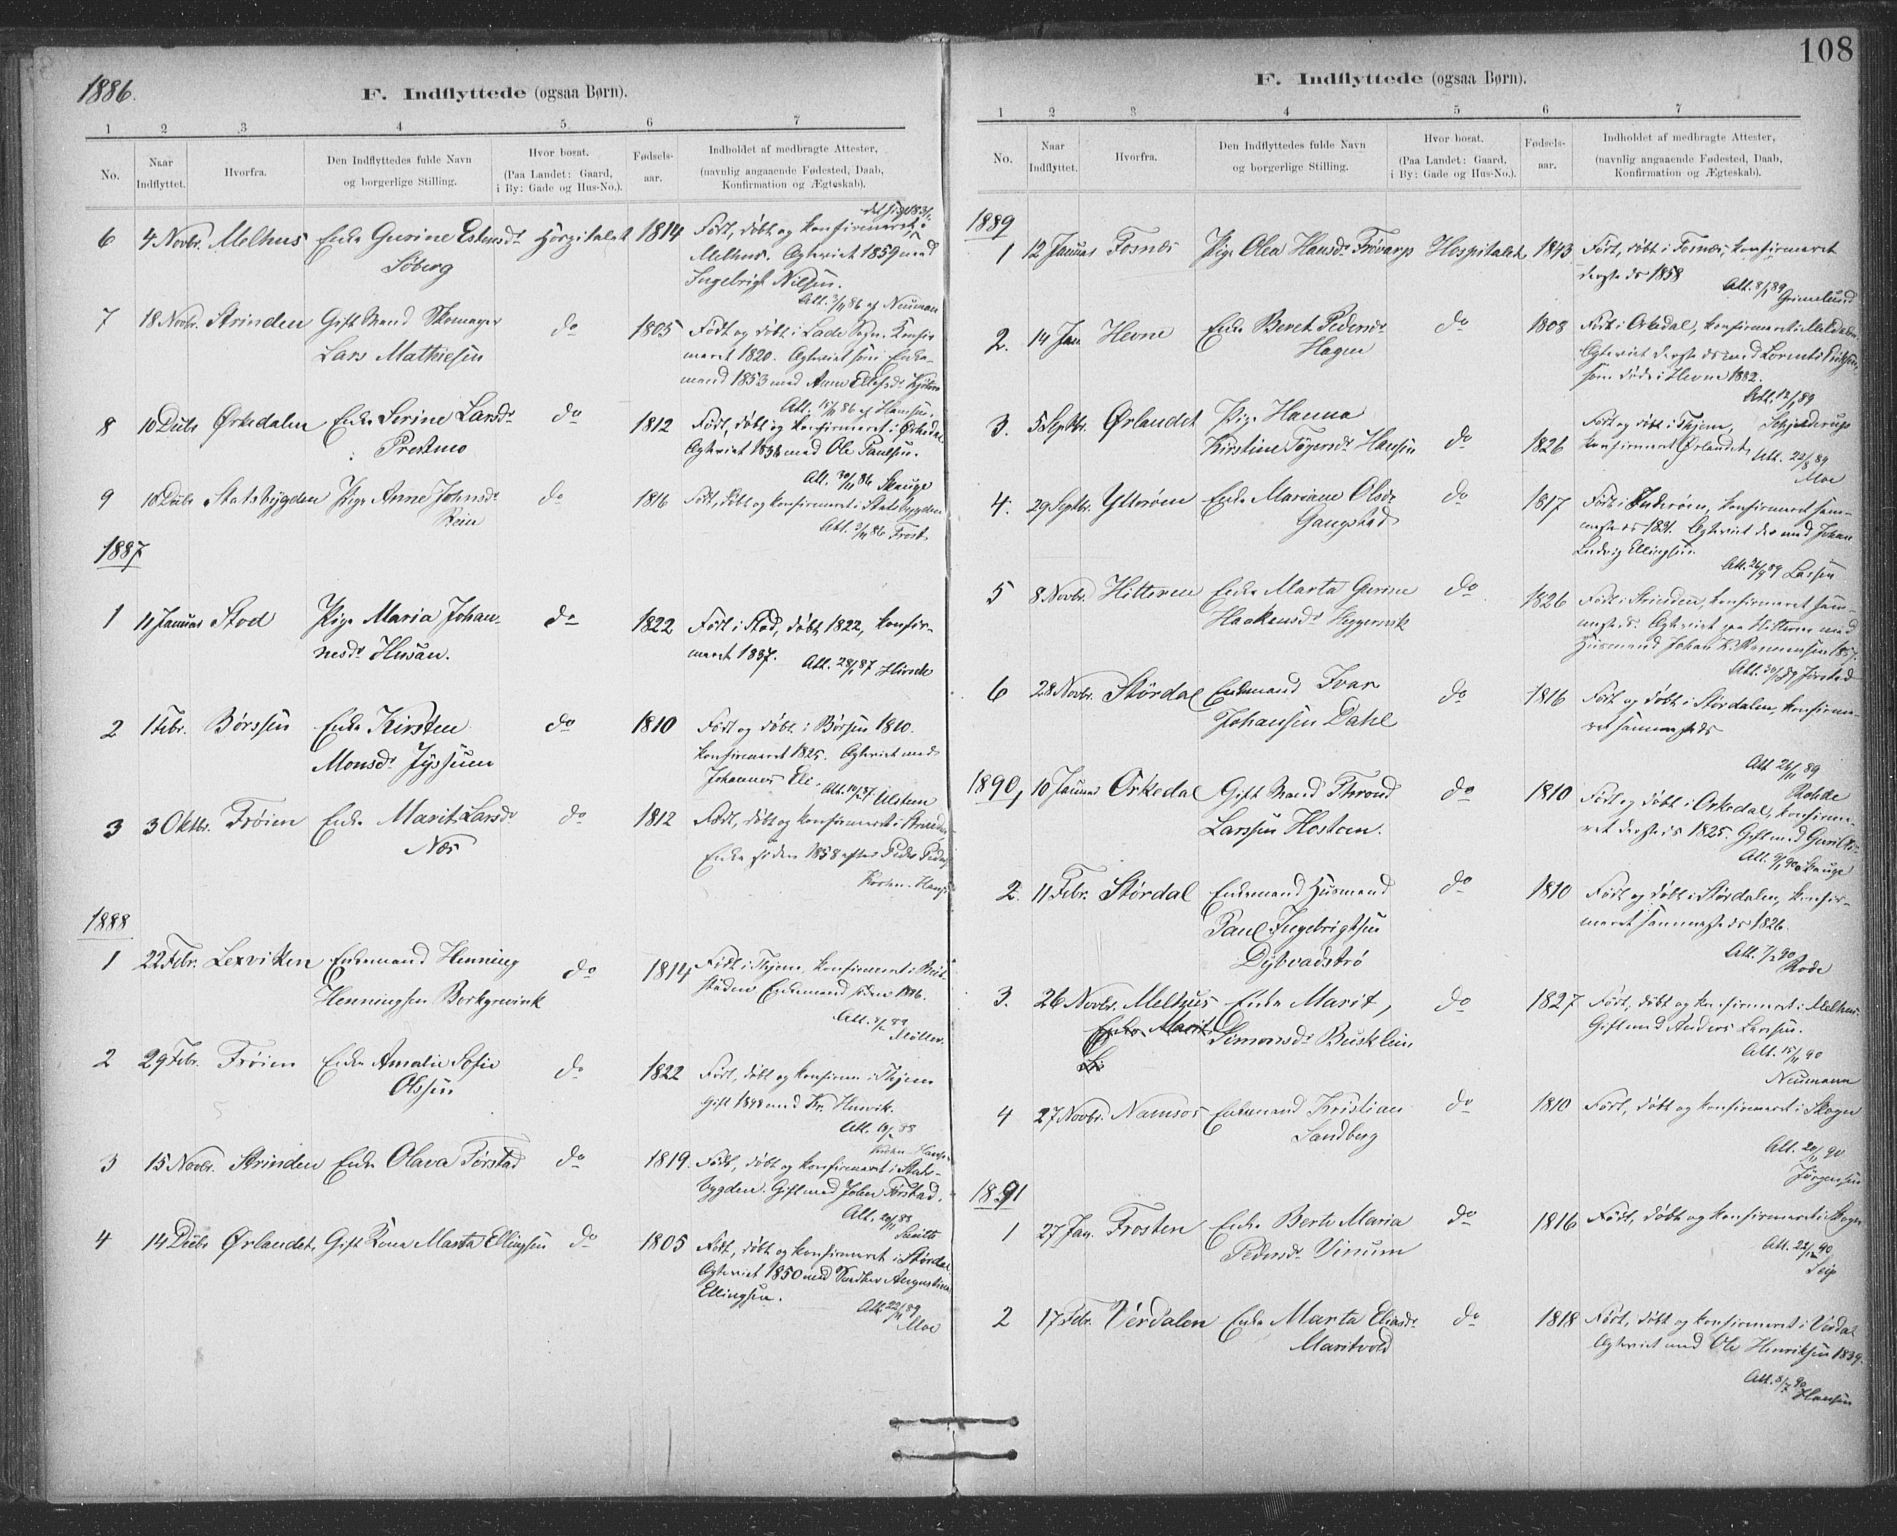 1886.
F. Indflyttede (ogsaa Børn).
1 2 3 4 5 6 7
No.
Naar Indflyttet.
Hvorfra.
Den Indflyttedes fulde Navn
og borgerlige Stilling.
Hvor bosat.
(Paa Landet: Gaard,
i By: Gade og Hus-No.).
Fødsels-
aar.
Indholdet af medbragte Attester,
(navnlig angaaende Fødested, Daab,
Konfirmation og Ægteskab).
6 4 Novbr. Melhus Enke Gurine Estensdr Hospitalet 1814 Født, døbt og konfirmeret i
Søberg Melhus. Egteviet 1859 med
Ingebrigt Nilsen.
Att. 3/11 86 af Neuman
7 18 Novbr. Strinden Gift Mand Skomager do 1805 Født og døbt i Lade Sogn. Konfir
Lars Mathiesen meret 1820. Egteviet som Enke-
mand 1853 med Anne
Att. 15/11 86 af Hansen.
8 10 Decbr Ørkedalen Enke Serine Larsdr do 1812 Født, døbt og konfirmeret i Ørkedal
Prestmo Egteviet 1836 med Ole Paulsen.
Att. 30/11 86 Skauge
9 10 Decbr Statsbygden Pige Anne Johnsdr do 1816 Født, døbt og konfirmeret i Statsbygden
Rein Att. 3/11 86 Frost
1887
1 11 Januar Stod Pige Maria Johan- do 1822 Født i Stod, døbt 1822, konfir-
nesdr Husan. meret 1837. Att. 28/1 87 Hirsch
2 1 Febr. Børssen Enke Kirsten do 1810 Født og døbt i Børsen 1810.
Monsdr konfirmeret 1825. Egteviet med
Johannes
Ulstein
3 3 Oktbr. Frøien Enke Marit Larsdr do 1812 Født, døbt og konfirmeret i
Næs Enke siden 1858 efter Peder
1888
1 22 Febr. Lexviken Enkemand Henning do 1814 Født i Thjem, konfirmeret i
Henningsen Borkgrevink Enkemand siden
Møller.
2 29 Febr. Frøien Enke Amalie Sofie do 1822 Født, døbt og konfirm. i Thjem
Olssen Gift 1848 med
3 15 Novbr. Strinden Enke Olava Tørstad do 1819. Født, døbt og konfirmeret i Stads-
bygden. Gift med John Tørstad.
4 14 Decbr Ørlandet. Gift Kone Marta Ellingsen do 1805 Født, døbt og konfirmeret i Størdal
Egteviet 1850 med Augustinus
Ellingsen.
Att. 22/11 89
Moe
108
F. Indflyttede (ogsaa Børn).
1 2 3 4 5 6 7
No.
Naar
Indflyttet.
Hvorfra.
Den Indflyttedes fulde Navn
og borgerlige Stilling.
Hvor bosat.
(Paa Landet: Gaard,
i By: Gade og Hus-No.).
Fødsels-
aar.
Indholdet af medbragte Attester,
(navnlig angaaende Fødested, Daab,
Konfirmation og Ægteskab).
1889
1 12 Januar Fosnæs Pige Olea Hansdr Hospitalet 1843 Født, døbt i Fosnæs, konfirmeret
dersteds 1858
Att. 8/1 89
Grimelund
2. 14 Jan Hevne Enke Beret Pedersdr do 1808 Født i Orkedal, konfirmeret i
Hagen Egteviet dersteds med Lorents
som døde i Hevne 1882.
Att. 12/1 89
Schjelderup
3. 5 Septbr. Ørlandet Pige Hanna do 1826 Født og døbt i Thjem,
Kirstine Hansen konfirmeret Ørlandet
Att. 22/8 89
Moe
4. 29 Septbr. Ytterøen Enke Mariane Olsdr do 1817 Født i Inderøen, konfirmeret sam-
Gangstad mesteds 1831. Egteviet der med Johan
Ludvig Ellingsen
Att. 26/9 89 Lassen
5 8 Novbr. Hitteren Enke Marta Gurine do 1826 Født i Strinden, konfirmeret sam-
Haakensdr mesteds. Egteviet paa Hitteren med
Husmand Johan 1857.
Att. 30/ 89
6 28 Novbr. Størdal Enkemand Ivar do 1816 Født og døbt i Størdalen, konfirme-
Johansen Dahl ret sammesteds
Att. 26/11 89
Rohde
1890, 10 Januar Orkedal Gift Mand Thrond do 1810 Født og døbt i Orkedal, konfirme-
Larssen Hostan. ret dersteds 1825. Gift med
Skauge
2. 11 Febr. Størdal Enkemand Husmand do 1810 Født og døbt i Størdalen, konfir-
Paul Ingebrigtsen meret sammesteds 1826.
Dybvadstrø Att. 7/2 90
Rode
3. 26 Novbr. Melhus Enke Marit, do 1827 Født, døbt og konfirmeret i Melhus.
Enke Marit Simonsdr Busklein Gift med Anders Larssen.
Att. 15/11 90
Neumann
4 27 Novbr. Namsos Enkemand Kristian do 1810 Født, døbt og konfirmeret i Skogn
Sandberg
Att. 20/11 90
Jørgensen
1891
1 27 Jan. Frosten Enke Berte Maria do 1816 Født, døbt og konfirmeret i Skogn
Pedersdr Vinum Att. 22/12 90
Seip
2 17 Febr. Verdalen Enke Marta Eliasdr do 1818 Født, døbt og konfirmeret i Verdal
Maritvold Egteviet med Ole Henriksen 1839.
Hansen